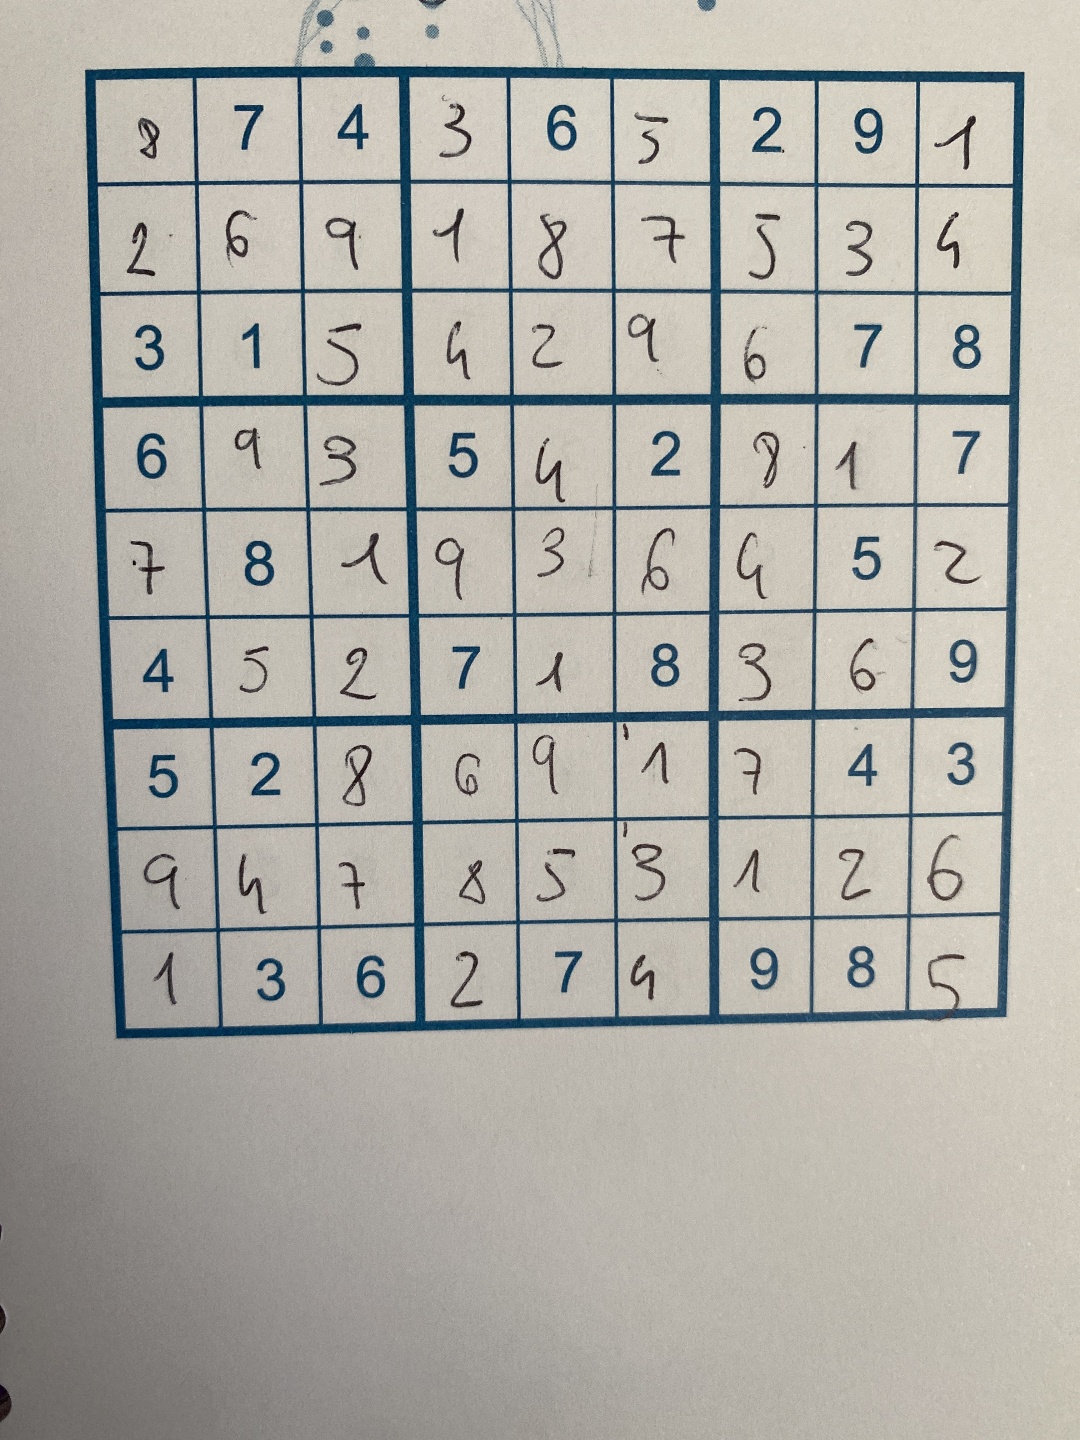 8 7 4 3 6 5 2 9 1
2 6 9 1 8 7 5 3 4
3 1 5 4 2 9 6 7 8
6 9 3 5 4 2 8 1 7
7 8 1 9 3 6 4 5 2
4 5 2 7 1 8 3 6 9
5 2 8 6 9 1 7 4 3
9 4 7 8 5 3 1 2 6
1 3 6 2 7 4 9 8 5